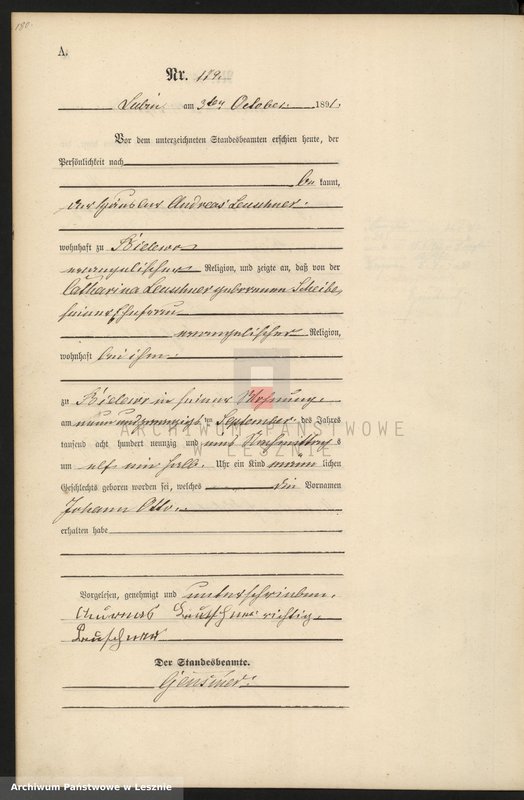 180.
A.
Nr. 189.
Lubin am 3ten October 1891.
Vor dem unterzeichneten Standesbeamten erschien heute, der
Persönlichkeit nach
be kannt,
der Häusler Andreas Leuschner
wohnhaft zu Bielewo
evangelischer Religion, und zeigte an, daß von der
Catharina Leuschner geborenen Scheibe,
seiner Ehefrau
evangelischer Religion,
wohnhaft bei ihm
zu Bielewo in seiner Wohnung
am neun und zwanzigsten September des Jahres
tausend acht hundert neunzig und eins Nachmittags
um elf ein halb Uhr ein Kind männ lichen
Geschlechts geboren worden sei, welches die Vornamen
Johann Otto
erhalten habe
Vorgelesen, genehmigt und unterschrieben.
Leuschner richtig
Leuschner
Der Standesbeamte.
ARCHIWUM PAŃSTWOWE
W LESZNIE
Archiwum Państwowe w Lesznie